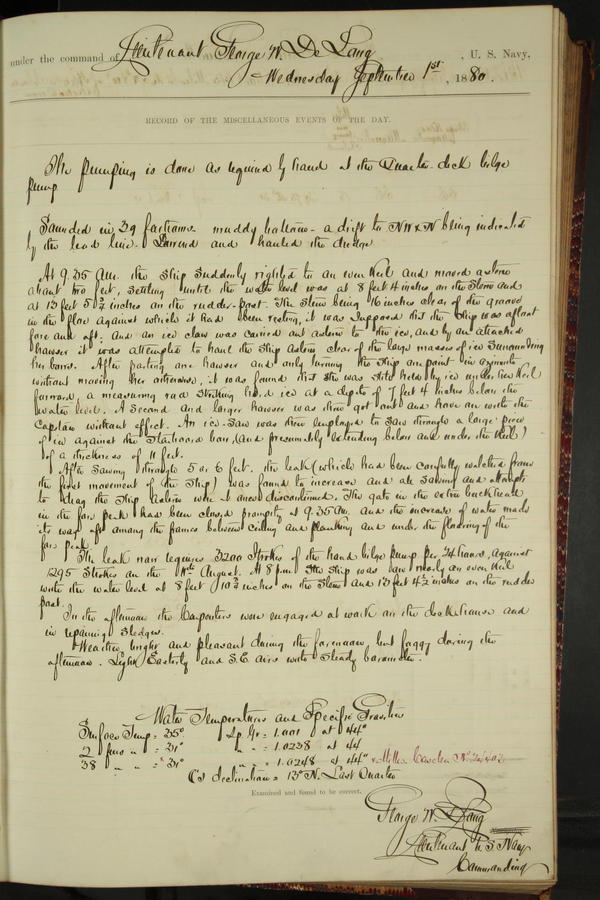 under the command of Lieutenant George W. De Long, U. S. Navy,
Wednesday September 1st, 1880.
RECORD OF THE MISCELLANEOUS EVENTS OF THE DAY.
The pumping is done as required by hand at the Quarter-deck bilge
pump
Sounded in 29 fathoms - muddy bottom - a drift to NW x N being indicated
by the lead line. Lowered and hauled the dredge
At 9.35 A.M. the Ship suddenly righted to an even Keel and moved astern
about two feet, settling until the water level was at 8 feet 4 inches on the Stem and
at 13 feet 5 3/4 inches on the rudder-post. The Stem being 16 inches clear of the groove
in the floe against which it had been resting, it was supposed that the Ship was afloat
fore and aft: and an ice claw was carried out astern to the ice, and by an attached
hawser it was attempted to haul the Ship astern clear of the large masses of ice surrounding
her bows. After parting one hawser and only turning the Ship one point in azimuth
without moving her otherwise, it was found that she was still held by ice under her Keel
forward, a measuring rod striking hard ice at a depth of 7 feet 4 inches below the
water level. A Second and larger hawser was then got out and hove on with the
Capstan without effect. An ice-saw was then employed to saw through a large piece
of ice against the Starboard bow, (and presumably extending below and under the Keel)
of a thickness of 11 feet.
After sawing through 5 or 6 feet, the leak (which had been carefully watched from
the first movement of the Ship) was found to increase and all sawing and attempts
to drag the Ship astern were at once discontinued. The gate in the extra bulkhead
in the fore peak had been closed promptly at 9.35 AM. and the increase of water made
its way aft among the frames between ceiling and planking and under the flooring of the
fore peak.
The leak now requires 3200 Strokes of the hand bilge pump per 24 hours, against
1295 Strokes on the August. At 8 p.m. the Ship was on nearly an even Keel
with the water level at 8 feet 10 3/4 inches on the Stem and 13 feet 4 1/2 inches on the rudder
post.
In the afternoon the Carpenters were engaged at work on the deck house and
in repairing sledges.
Weather bright and pleasant during the forenoon but foggy during the
afternoon. Light Easterly and S.E. airs with Steady barometer.
Water Temperatures and Specific Gravities
Surface Temp = 35° Sp. Gr = 1.001 at 44°
2 fms " = 31° " " = 1.0238 at 44
38 " " = 31° " " = 1.0248 at 44° Miller Casella No
C's declination = 15° N. Last Quarter
Examined and found to be correct.
George W. De Long
Lieutenant U. S. Navy
Commanding